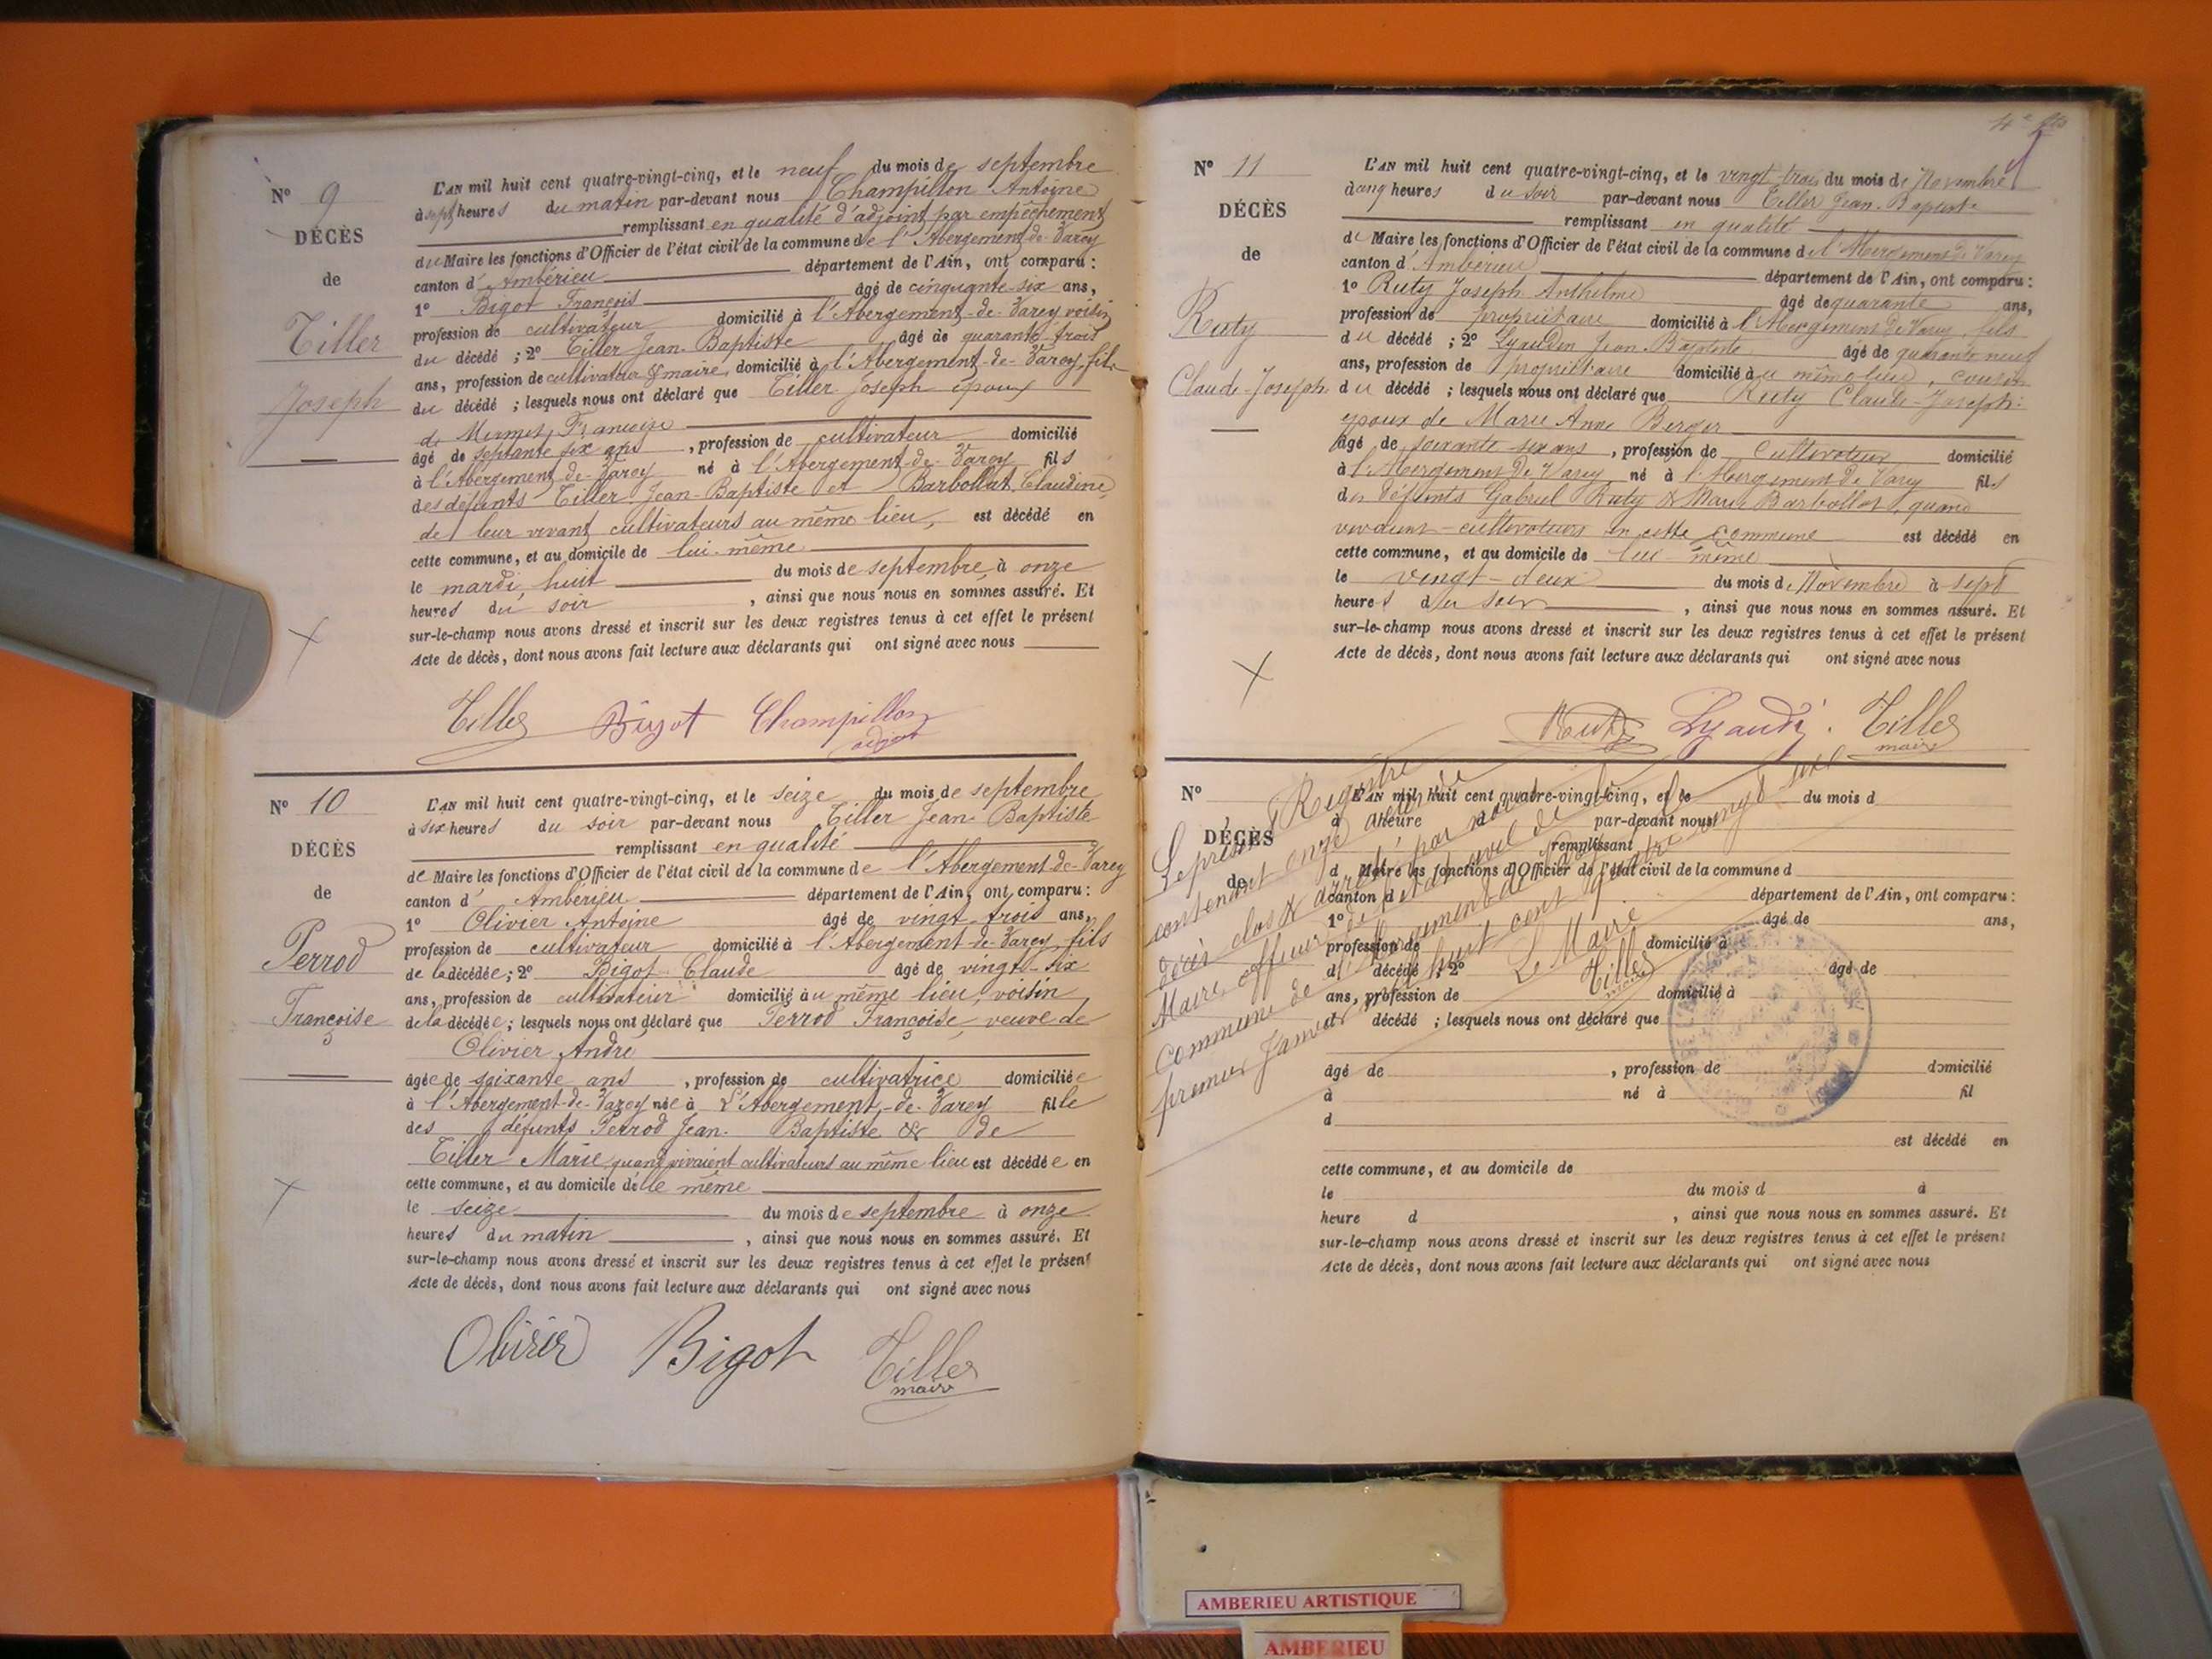 N° 9
DÉCÈS
de
Tiller
Joseph
L'AN mil huit cent quatre-vingt-cinq, et le neuf du mois de septembre
à sept heures du matin par-devant nous Champillon Antoine
remplissant en qualité d'adjoint par empêchement
du Maire les fonctions d'Officier de l'état civil de la commune de l'Abergement-de-Varey
canton d'Ambérieu département de l'Ain, ont comparu :
1° Bigot François âgé de cinquante-six ans,
profession de cultivateur domicilié à l'Abergement-de-Varey voisin
du décédé ; 2° Tiller Jean-Baptiste âgé de quarante trois
ans, profession de cultivateur & maire, domicilié à l'Abergement-de-Varey, fils
du décédé ; lesquels nous ont déclaré que Tiller Joseph époux
de Mermet Françoise
âgé de septante six ans, profession de cultivateur domicilié
à l'Abergement-de-Varey né à l'Abergement-de-Varey fils
des défunts Tiller Jean-Baptiste et Barbollat Claudine,
de leur vivant cultivateurs au même lieu, est décédé en
cette commune, et au domicile de lui-même
le mardi, huit du mois de septembre à onze
heures du soir, ainsi que nous nous en sommes assuré. Et
sur-le-champ nous avons dressé et inscrit sur les deux registres tenus à cet effet le présent
Acte de décès, dont nous avons fait lecture aux déclarants qui ont signé avec nous
Tiller Bigot Champillon
adjoint
N° 10
DÉCÈS
de
Perrod
Françoise
L'AN mil huit cent quatre-vingt-cinq, et le seize du mois de septembre
à six heures du soir par-devant nous Tiller Jean-Baptiste
remplissant en qualité
de Maire les fonctions d'Officier de l'état civil de la commune de l'Abergement-de-Varey
canton d'Ambérieu département de l'Ain, ont comparu :
1° Olivier Antoine âgé de vingt-trois ans,
profession de cultivateur domicilié à l'Abergement-de-Varey, fils
de la décédée ; 2° Bigot Claude âgé de vingt-six
ans, profession de cultivateur domicilié au même lieu, voisin
de la décédée ; lesquels nous ont déclaré que Perrod Françoise, veuve de
Olivier André
âgée de soixante ans, profession de cultivatrice domiciliée
à l'Abergement-de-Varey née à L'Abergement-de-Varey fille
des défunts Perrod Jean-Baptiste & de
Tiller Marie quand vivaient cultivateurs au même lieu est décédée en
cette commune, et au domicile d'elle même
le seize du mois de septembre à onze
heures du matin, ainsi que nous nous en sommes assuré. Et
sur-le-champ nous avons dressé et inscrit sur les deux registres tenus à cet effet le présent
Acte de décès, dont nous avons fait lecture aux déclarants qui ont signé avec nous
Olivier Bigot Tiller
maire
N° 11
DÉCÈS
de
Ruty
Claude-Joseph
L'AN mil huit cent quatre-vingt-cinq, et le vingt trois du mois de Novembre
à cinq heures du soir par-devant nous Tiller Jean-Baptiste
remplissant en qualité
de Maire les fonctions d'Officier de l'état civil de la commune de l'Abergement de Varey
canton d'Ambérieu département de l'Ain, ont comparu :
1° Ruty Joseph Anthelme âgé de quarante ans,
profession de propriétaire domicilié à l'Abergement de Varey, fils
du décédé ; 2° Lyaudin Jean-Baptiste âgé de quarante neuf
ans, profession de propriétaire domicilié au même lieu, cousin
du décédé ; lesquels nous ont déclaré que Ruty Claude-Joseph
époux de Marie Anne Berger
âgé de soixante six ans, profession de cultivateur domicilié
à l'Abergement de Varey né à l'Abergement de Varey fils
des défunts Gabriel Ruty & Marie Barbollat, quand
vivaient cultivateurs en cette commune est décédé en
cette commune, et au domicile de lui-même
le vingt-deux du mois de Novembre à sept
heures du soir, ainsi que nous nous en sommes assuré. Et
sur-le-champ nous avons dressé et inscrit sur les deux registres tenus à cet effet le présent
Acte de décès, dont nous avons fait lecture aux déclarants qui ont signé avec nous
Ruty Lyaudi. Tiller
maire
N°
DÉCÈS
de
L'AN mil huit cent quatre-vingt-cinq, et le du mois d
à heure par-devant nous
remplissant
d Maire les fonctions d'Officier de l'état civil de la commune d
canton d département de l'Ain, ont comparu :
1° âgé de ans,
profession de domicilié à
d décédé ; 2° âgé de
ans, profession de domicilié à
d décédé ; lesquels nous ont déclaré que
âgé de , profession de domicilié
à né à fil
d
est décédé en
cette commune, et au domicile de
le du mois d à
heure d , ainsi que nous nous en sommes assuré. Et
sur-le-champ nous avons dressé et inscrit sur les deux registres tenus à cet effet le présent
Acte de décès, dont nous avons fait lecture aux déclarants qui ont signé avec nous
Le présent Registre
contenant onze
décès clos & arrêté par nous
Maire, officier de l'état civil de la
commune de l'Abergement de Varey
premier Janvier mil huit cent quatre vingt six
Le Maire
Tiller
maire
AMBERIEU ARTISTIQUE
AMBERIEU